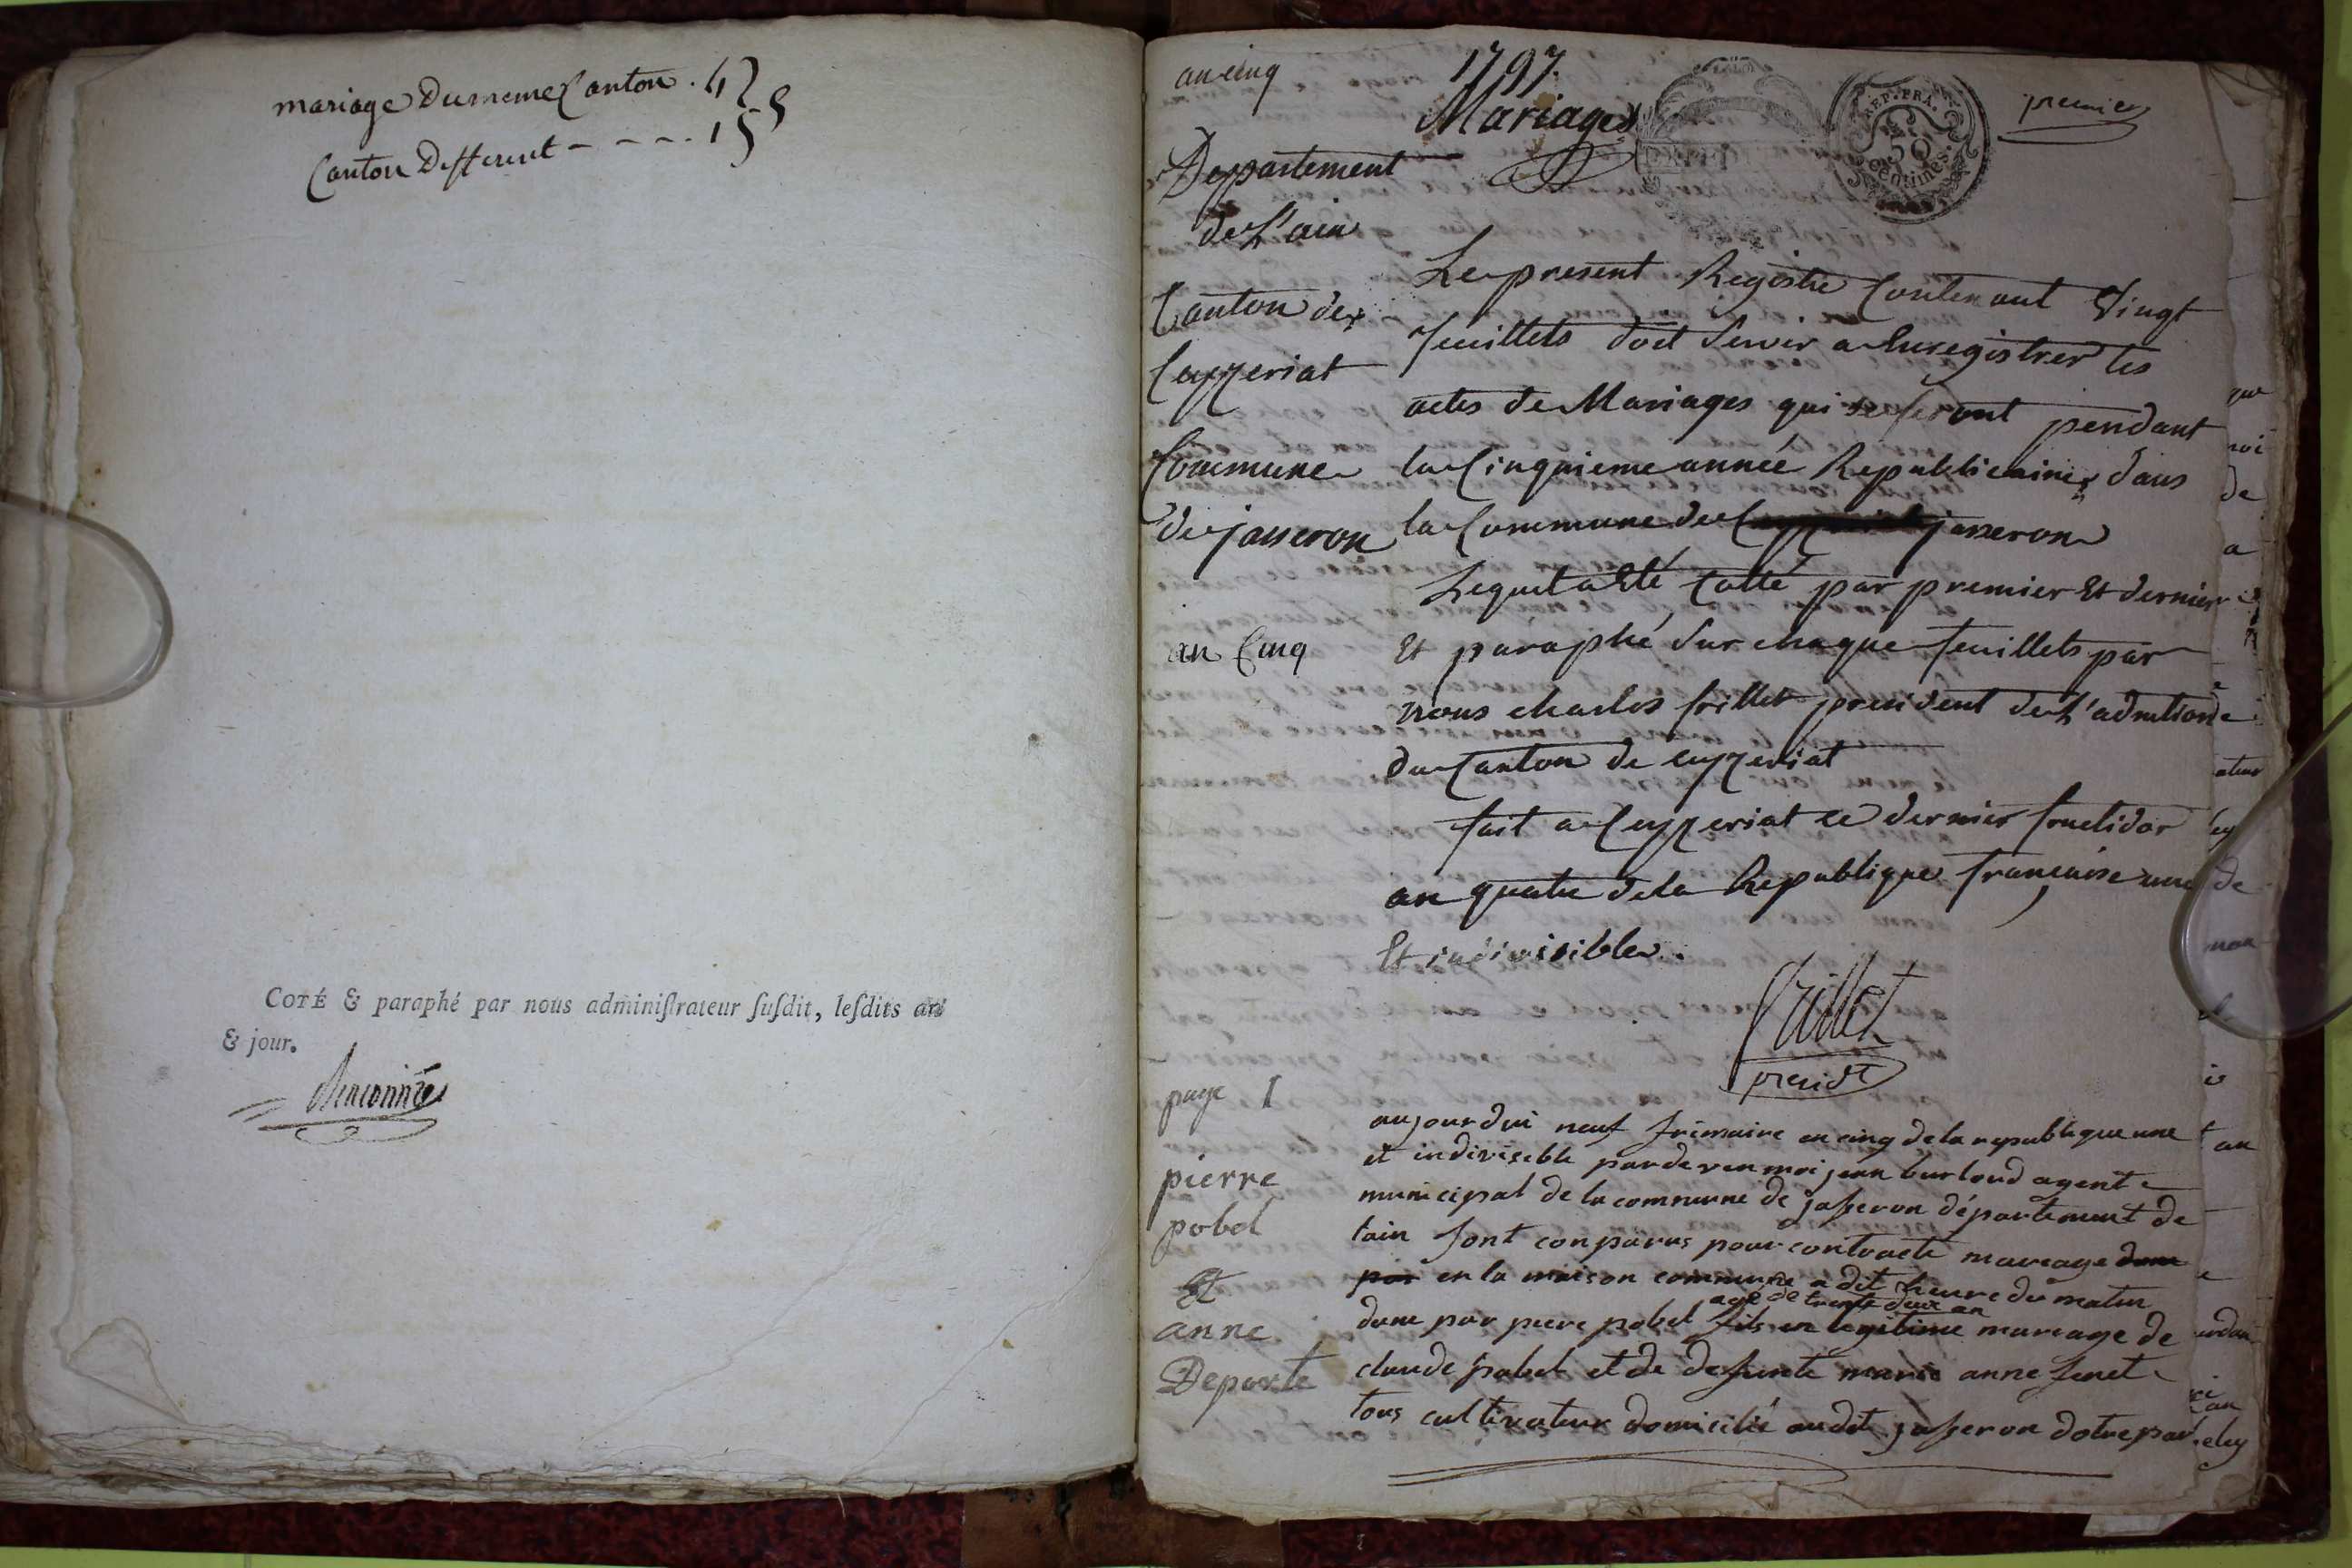 mariage Du meme Canton . 4 } 5
Canton Different - - - - . 1
COTÉ & paraphé par nous adminiſtrateur ſuſdit, leſdits an
& jour.
an cinq
1797.
Mariages
REP. FRA.
50
Centimes.
premier
Departement
de L'ain
Canton de
Ceyzeriat
Commune
de jasseron
an Cinq
Le present Registre Contenant Vingt
feuillets doit servir a Enregistrer les
actes de Mariages qui se feront pendant
la Cinquieme année Republicaine dans
la Commune de Ceyzeriat jasseron
Lequel a Eté Cotté par premier Et dernier
Et paraphé sur chaque feuillets par
nous charles frillet president de L'admtion
du Canton de ceyzeriat
fait a Ceyzeriat le dernier fructidor
an quatre de la Republique française une
Et indivisible.
frillet
presidt
page 1
pierre
pobel
Et
anne
Deporte
aujourdui neuf frimaire an cinq de la republique une
et indiviseble pardevan moi jean burloud agent
municipal de la commune de jasseron département de
lain sont conparus pour contracte mareage dune
par en la maison commune a dit heure du matin
age de trente deux an
dune par piere pobel fils en legitime mareage de
claude pobel et de defunte marie anne feret
tous cultivateur domicilié audit jasseron dotre part